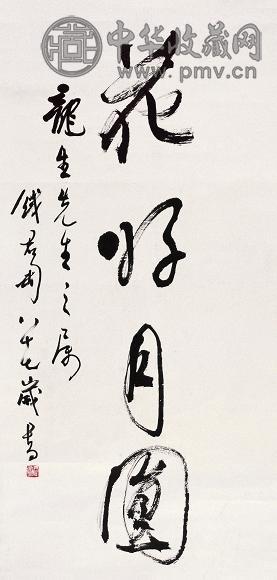 中华收藏网
www.pmv.cn
花好月圆
龍生先生之属
钱君匋八十七歲書